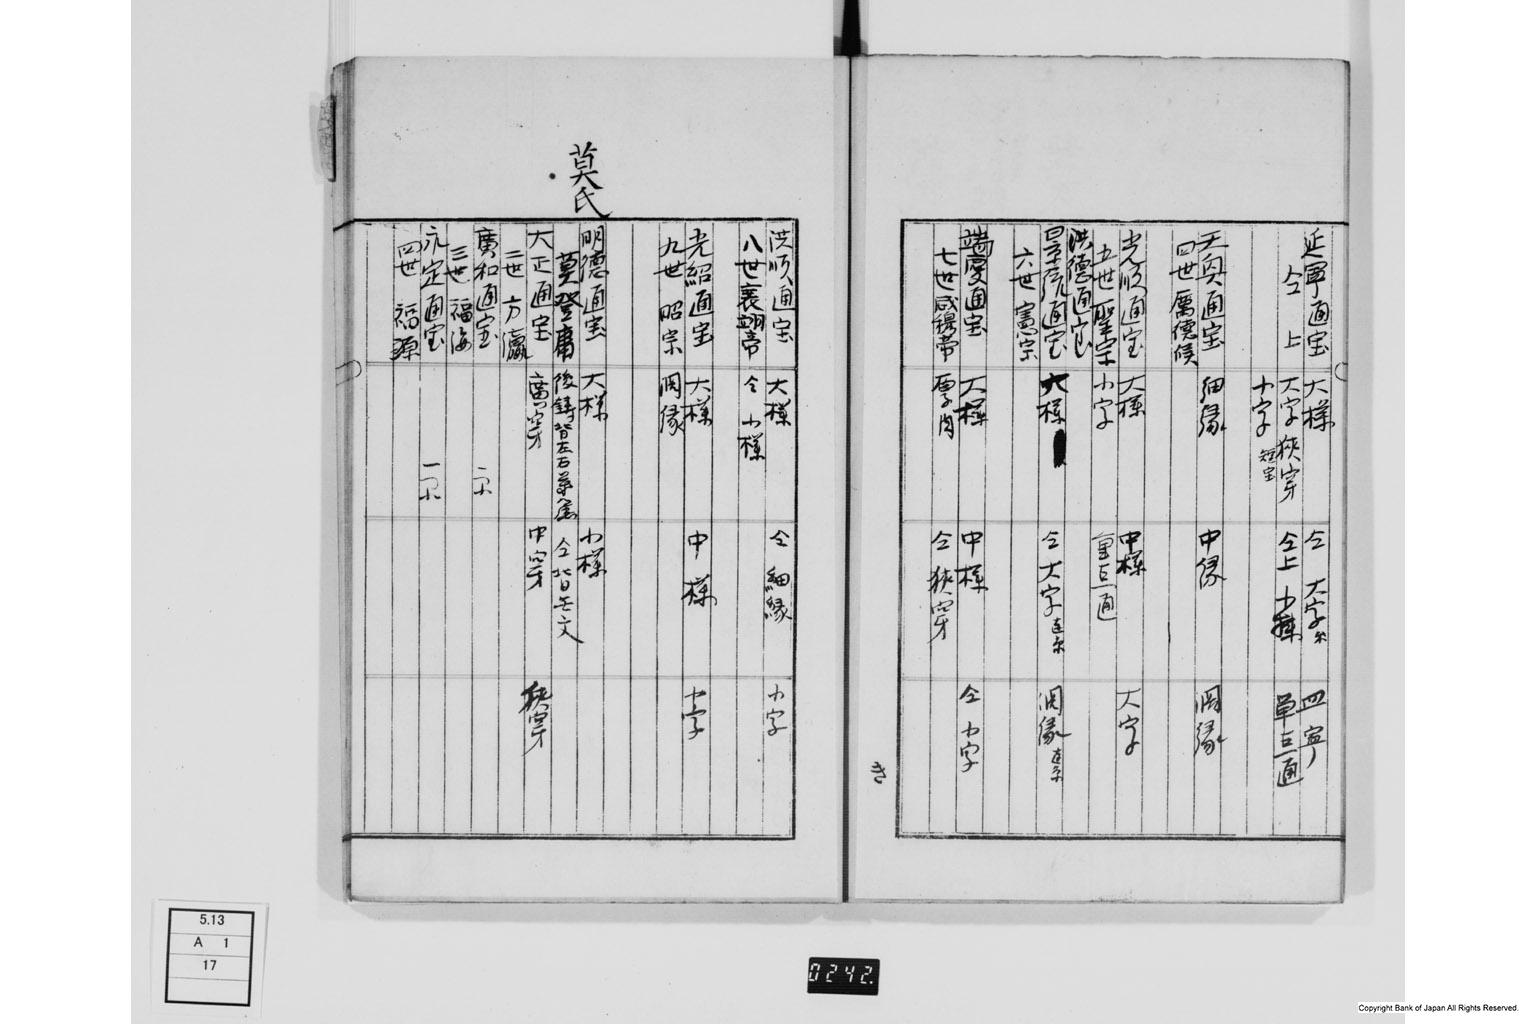 延寧通宝 大様 仝 大字 四寧
仝 上 大字 狭穿 仝上 小様 単巨通
小字 短宝
天與通宝 細縁 中縁 濶縁
四世 厲德侯
光順通宝 大様 中様 大字
五世 聖宗 小字 重巨通
洪德通宝
景統通宝 大様 仝 大字 濶縁
六世 憲宗
端慶通宝 大様 中様 仝 小字
七世 威穆帝 厚肉 仝 狭穿
き
洪順通宝 大様 仝 細縁 小字
八世 襄翊帝 仝 小様
光紹通宝 大様 中様 小字
九世 昭宗 濶縁
莫氏
明德通宝 大様 小様
莫登庸 後鋳 背左右 仝 背無文
大正通宝 廣穿 中穿 狭穿
二世 方瀛
廣和通宝
三世 福海
永定通宝
四世 福源
5.13
A 1
17
0242.
Copyright Bank of Japan All Rights Reserved.